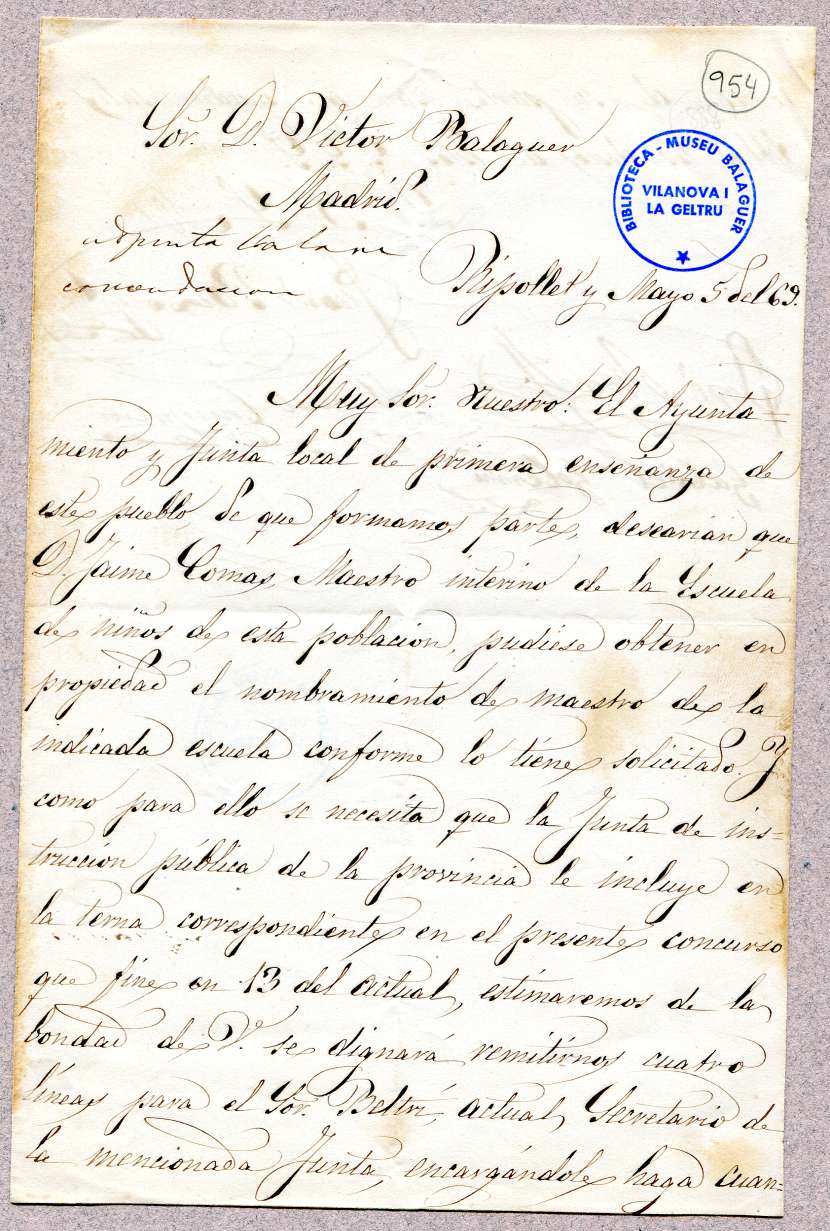 954
Sor. D. Victor Balaguer
Madrid.
BIBLIOTECA - MUSEU BALAGUER
VILANOVA I
LA GELTRU
Ripollet y Mayo 5 del 69.
Muy Sor. Nuestro: El Ayunta=
miento y Junta local de primera enseñanza de
este pueblo de que formamos parte, desearian que
D. Jaime Comas, Maestro interino de la Escuela
de niños de esta poblacion, pudiese obtener en
propiedad el nombramiento de maestro de la
indicada escuela conforme lo tiene solicitado. Y
como para ello se necesita que la Junta de ins=
truccion pública de la provincia le incluye en
la terna correspondiente en el presente concurso
que fine en 13 del actual, estimaremos de la
bondad de V. se dignará remitirnos cuatro
líneas para el Sor. Beltrí, actual Secretario de
la mencionada Junta, encargándole haga cuan=